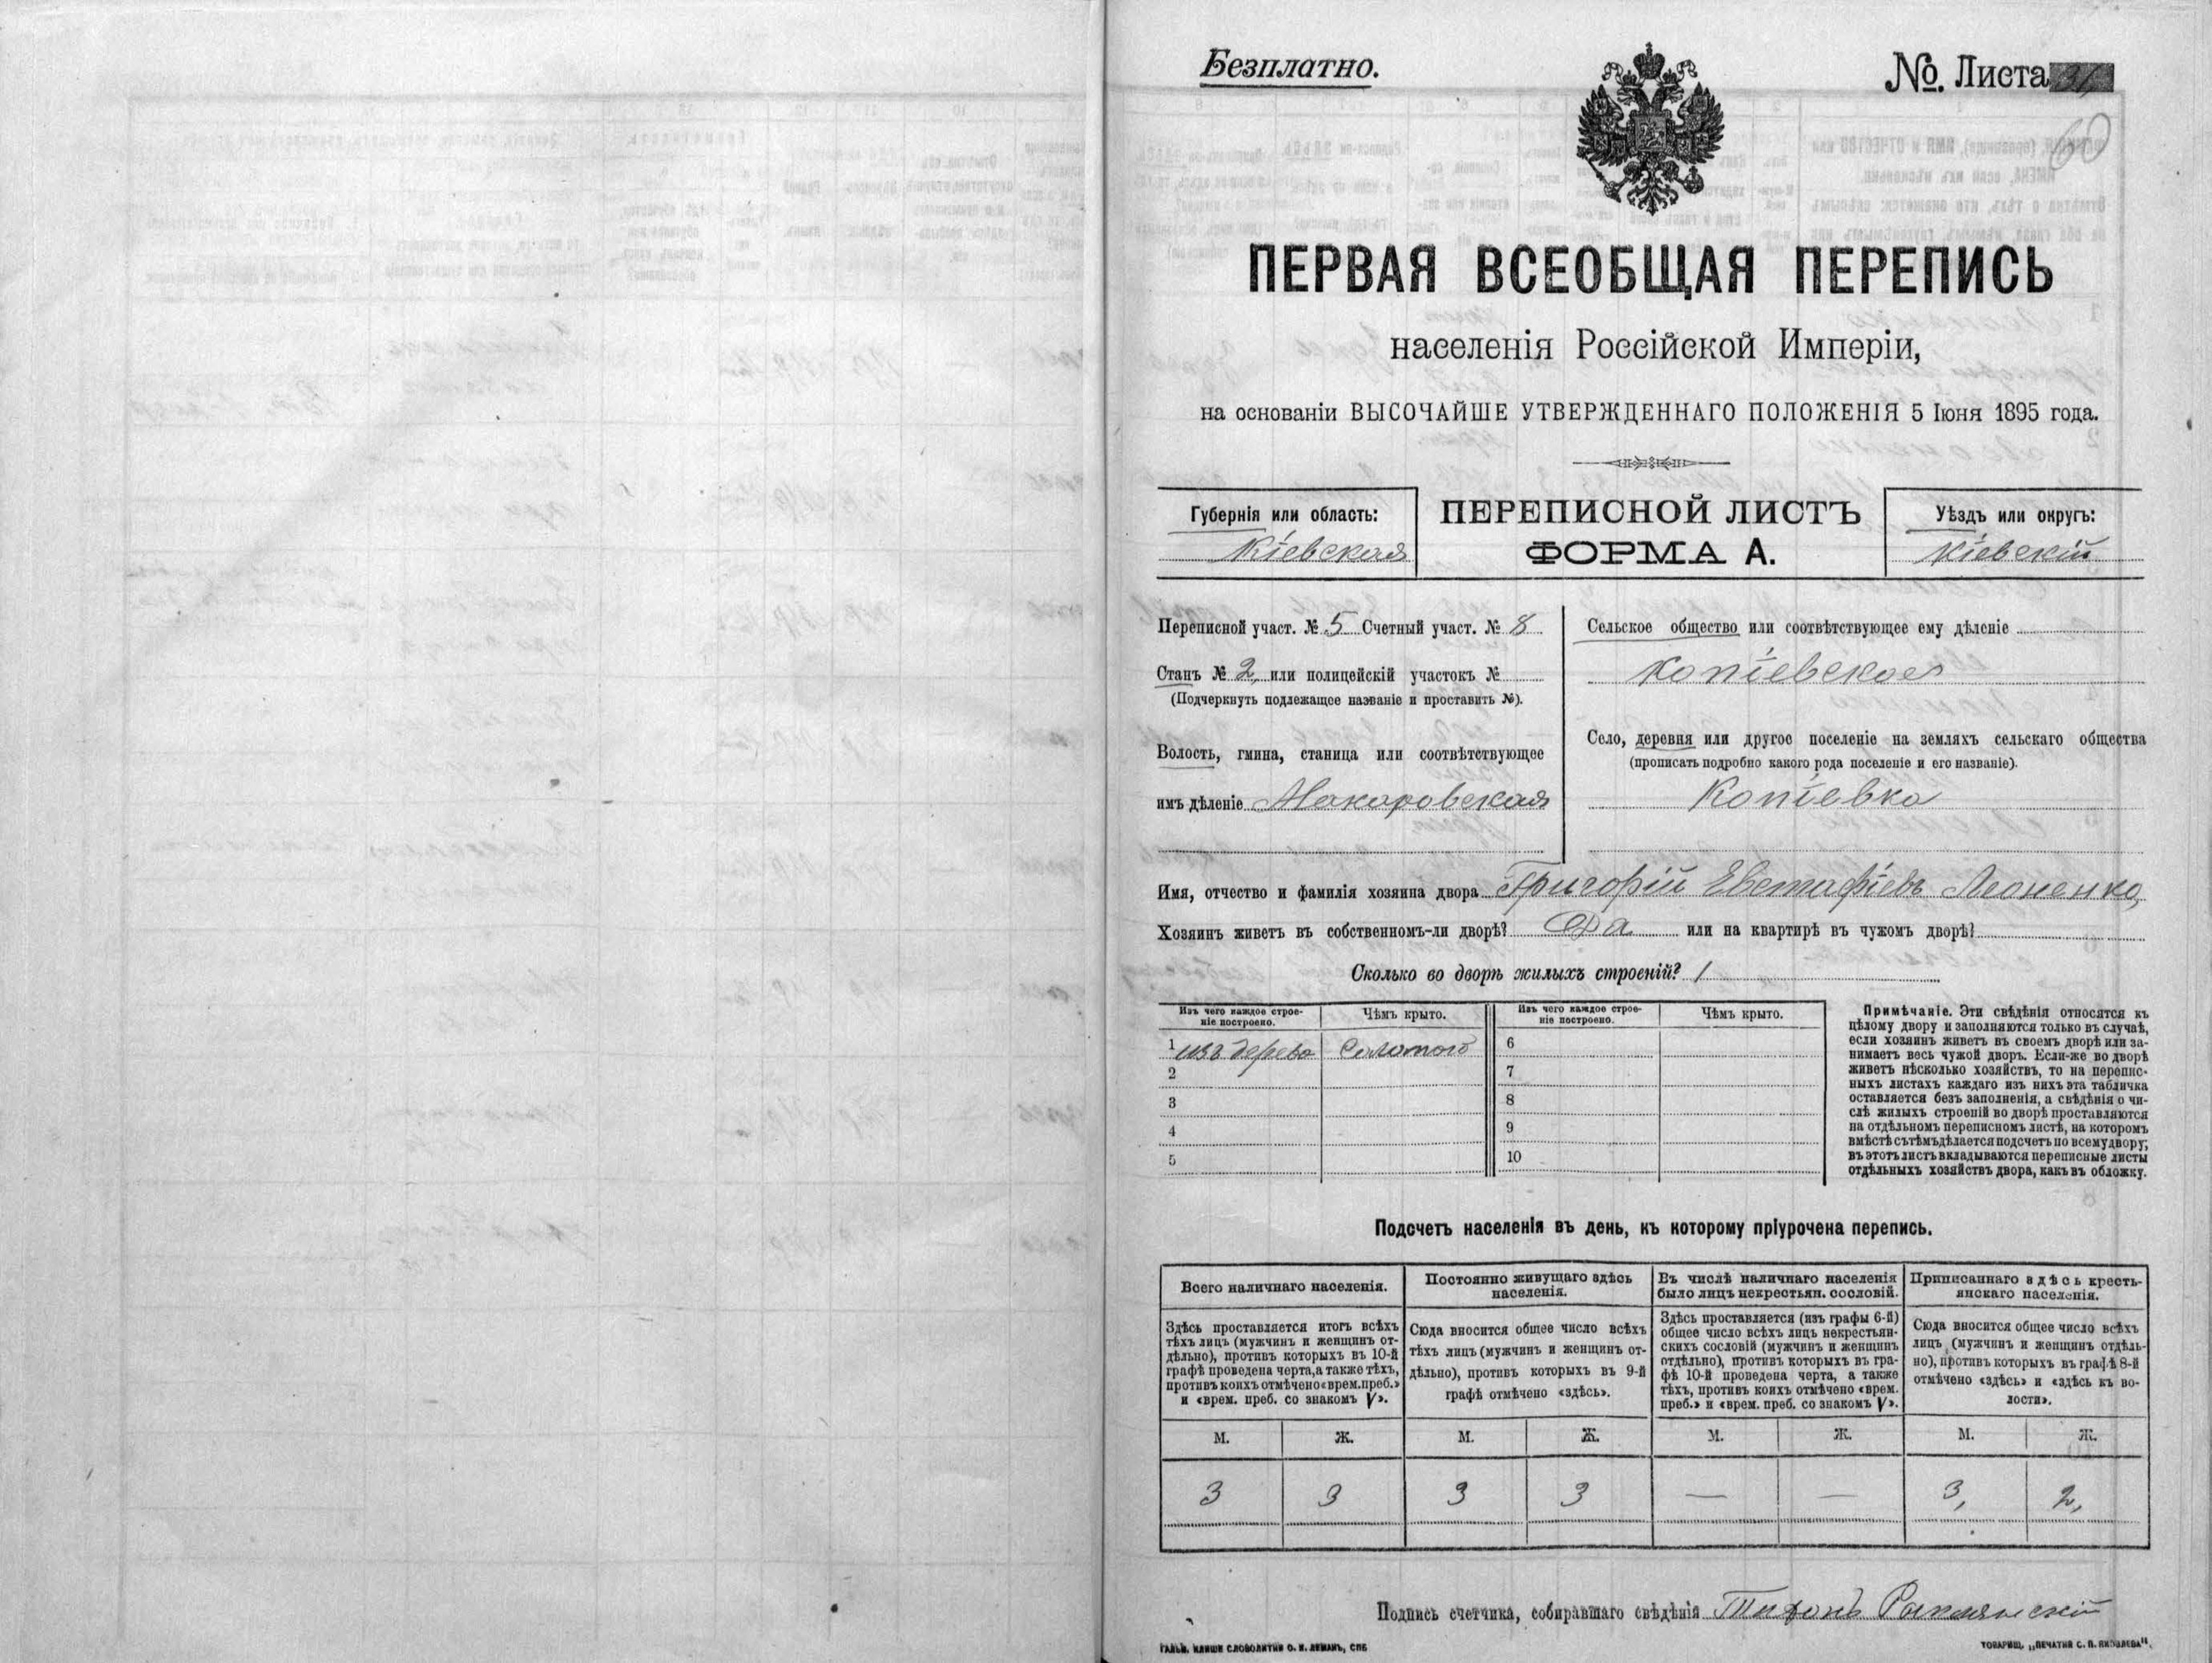 Безплатно.
№. Листа 31,
60
ПЕРВАЯ ВСЕОБЩАЯ ПЕРЕПИСЬ
населенія Россійской Имперіи,
на основаніи ВЫСОЧАЙШЕ УТВЕРЖДЕННАГО ПОЛОЖЕНІЯ 5 Іюня 1895 года.
Губернія или область:
Кіевская
ПЕРЕПИСНОЙ ЛИСТЪ
ФОРМА А.
Уѣздъ или округъ:
Кіевскій
Переписной участ. № 5 Счетный участ. № 8
Станъ № 2, или полицейскій участокъ №
(Подчеркнуть подлежащее названіе и проставить №).
Волость, гмина, станица или соотвѣтствующее
имъ дѣленіе Макаровская
Сельское общество или соотвѣтствующее ему дѣленіе
Копіевское
Село, деревня или другое поселеніе на земляхъ сельскаго общества
(прописать подробно какого рода поселеніе и его названіе).
Копіевка
Имя, отчество и фамилія хозяина двора Григорій Евстафіевъ Леоненко,
Хозяинъ живетъ въ собственномъ-ли дворѣ? Да или на квартирѣ въ чужомъ дворѣ?
Сколько во дворѣ жилыхъ строеній? 1
Изъ чего каждое строе-
ніе построено.
Чѣмъ крыто.
Изъ чего каждое строе-
ніе построено.
Чѣмъ крыто.
1 изъ дерева Соломою 6
2 7
3 8
4 9
5 10
Примѣчаніе. Эти свѣдѣнія относятся къ
цѣлому двору и заполняются только въ случаѣ,
если хозяинъ живетъ въ своемъ дворѣ или за-
нимаетъ весь чужой дворъ. Если-же во дворѣ
живетъ нѣсколько хозяйствъ, то на перепис-
ныхъ листахъ каждаго изъ нихъ эта табличка
оставляется безъ заполненія, а свѣдѣнія о чи-
слѣ жилыхъ строеній во дворѣ проставляются
на отдѣльномъ переписномъ листѣ, на которомъ
вмѣстѣ съ тѣмъ дѣлается подсчетъ по всему двору;
въ этотъ листъ вкладываются переписные листы
отдѣльныхъ хозяйствъ двора, какъ въ обложку.
Подсчетъ населенія въ день, къ которому пріурочена перепись.
Всего наличнаго населенія.
Здѣсь проставляется итогъ всѣхъ
тѣхъ лицъ (мужчинъ и женщинъ от-
дѣльно), противъ которыхъ въ 10-й
графѣ проведена черта, а также тѣхъ,
противъ коихъ отмѣчено «врем. преб.»
и «врем. преб. со знакомъ V».
Постоянно живущаго здѣсь
населенія.
Сюда вносится общее число всѣхъ
тѣхъ лицъ (мужчинъ и женщинъ от-
дѣльно), противъ которыхъ въ 9-й
графѣ отмѣчено «здѣсь».
Въ числѣ наличнаго населенія
было лицъ некрестьян. сословій.
Здѣсь проставляется (изъ графы 6-й)
общее число всѣхъ лицъ некрестьян-
скихъ сословій (мужчинъ и женщинъ
отдѣльно), противъ которыхъ въ гра-
фѣ 10-й проведена черта, а также
тѣхъ, противъ коихъ отмѣчено «врем.
преб.» и «врем. преб. со знакомъ V».
Приписаннаго здѣсь кресть-
янскаго населенія.
Сюда вносится общее число всѣхъ
лицъ (мужчинъ и женщинъ отдѣль-
но), противъ которыхъ въ графѣ 8-й
отмѣчено «здѣсь» и «здѣсь къ во-
лости».
М. Ж. М. Ж. М. Ж. М. Ж.
3 3 3 3 — — 3, 2,
Подпись счетчика, собиравшаго свѣдѣнія Тихонъ
ГАЛЬВ. КЛИШЕ СЛОВОЛИТНИ О. И. ЛЕМАНЪ, СПБ
ТОВАРИЩ. „ПЕЧАТНЯ С. П. ЯКОВЛЕВА“.